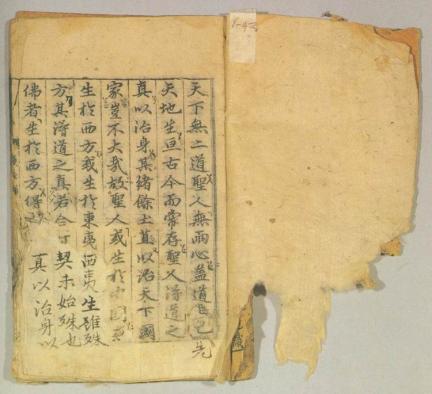 天下無二道聖人無兩心蓋道先
天地生亘古今而常存聖人得道之
真以治身其緒餘土苴以治天下國
家豈不大哉故聖人或生於中國或
生於西方或生於東夷西夷生雖殊
方其得道之真若合契未始殊也
佛者生於西方得真以治身以